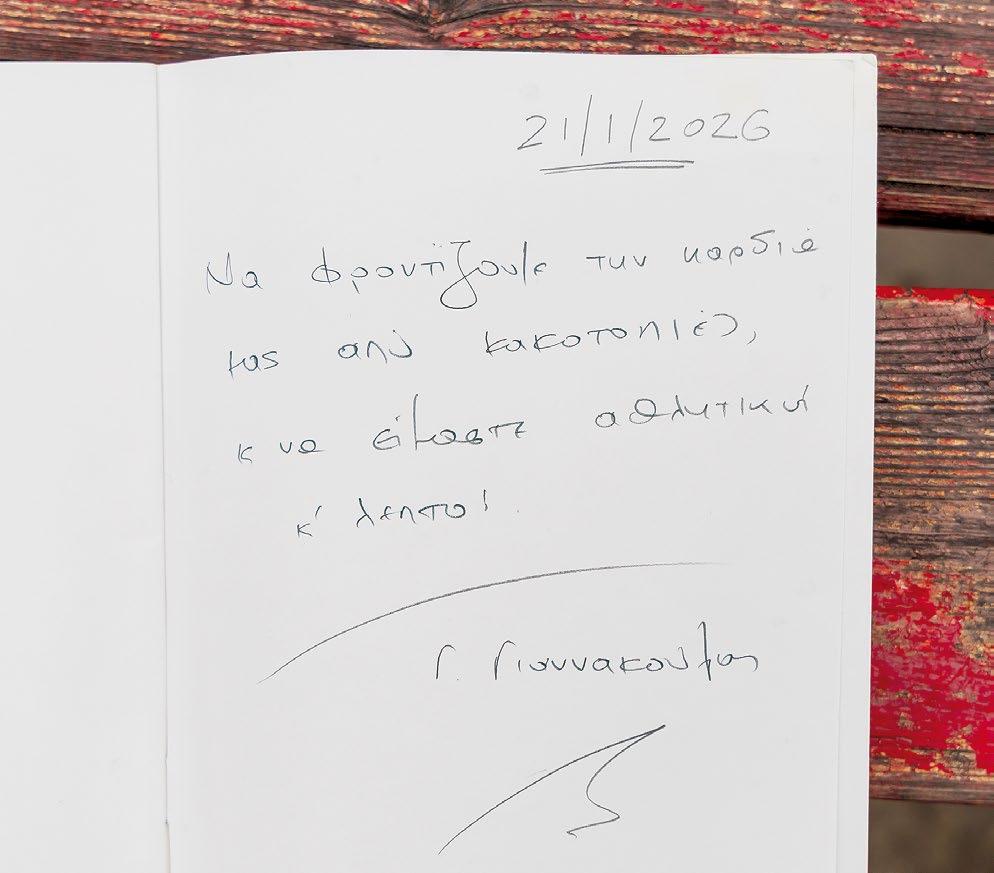 21/1/2026
Να φροντίζουμε την καρδιά
μας από κακοτοπιές,
κ να είμαστε αθλητικοί
κ' λεπτοί
Γ. Γιαννακούλιας